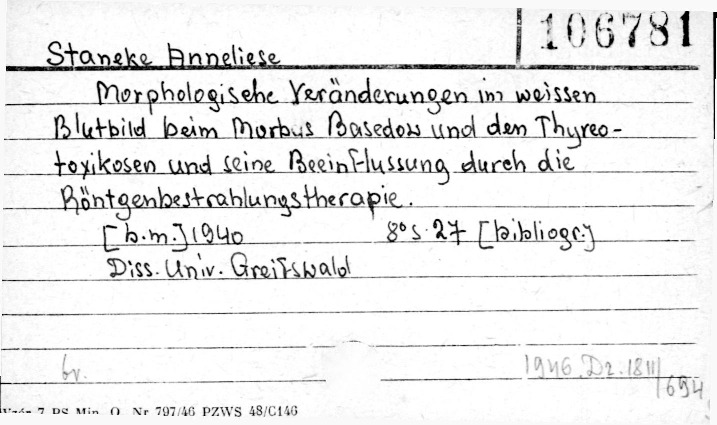 106781
Staneke Anneliese
Morphologische Veränderungen im weissen
Blutbild beim Morbus Basedow und den Thyreo-
toxikosen und seine Beeinflussung durch die
Röntgenbestrahlungstherapie.
[b.m.] 1940 8° s. 27 [bibliogr.]
Diss. Univ. Greifswald
br. 1946. Dz. 1811/694
Wzór 7 PS Min. O. Nr 797/46 PZWS 48/C146